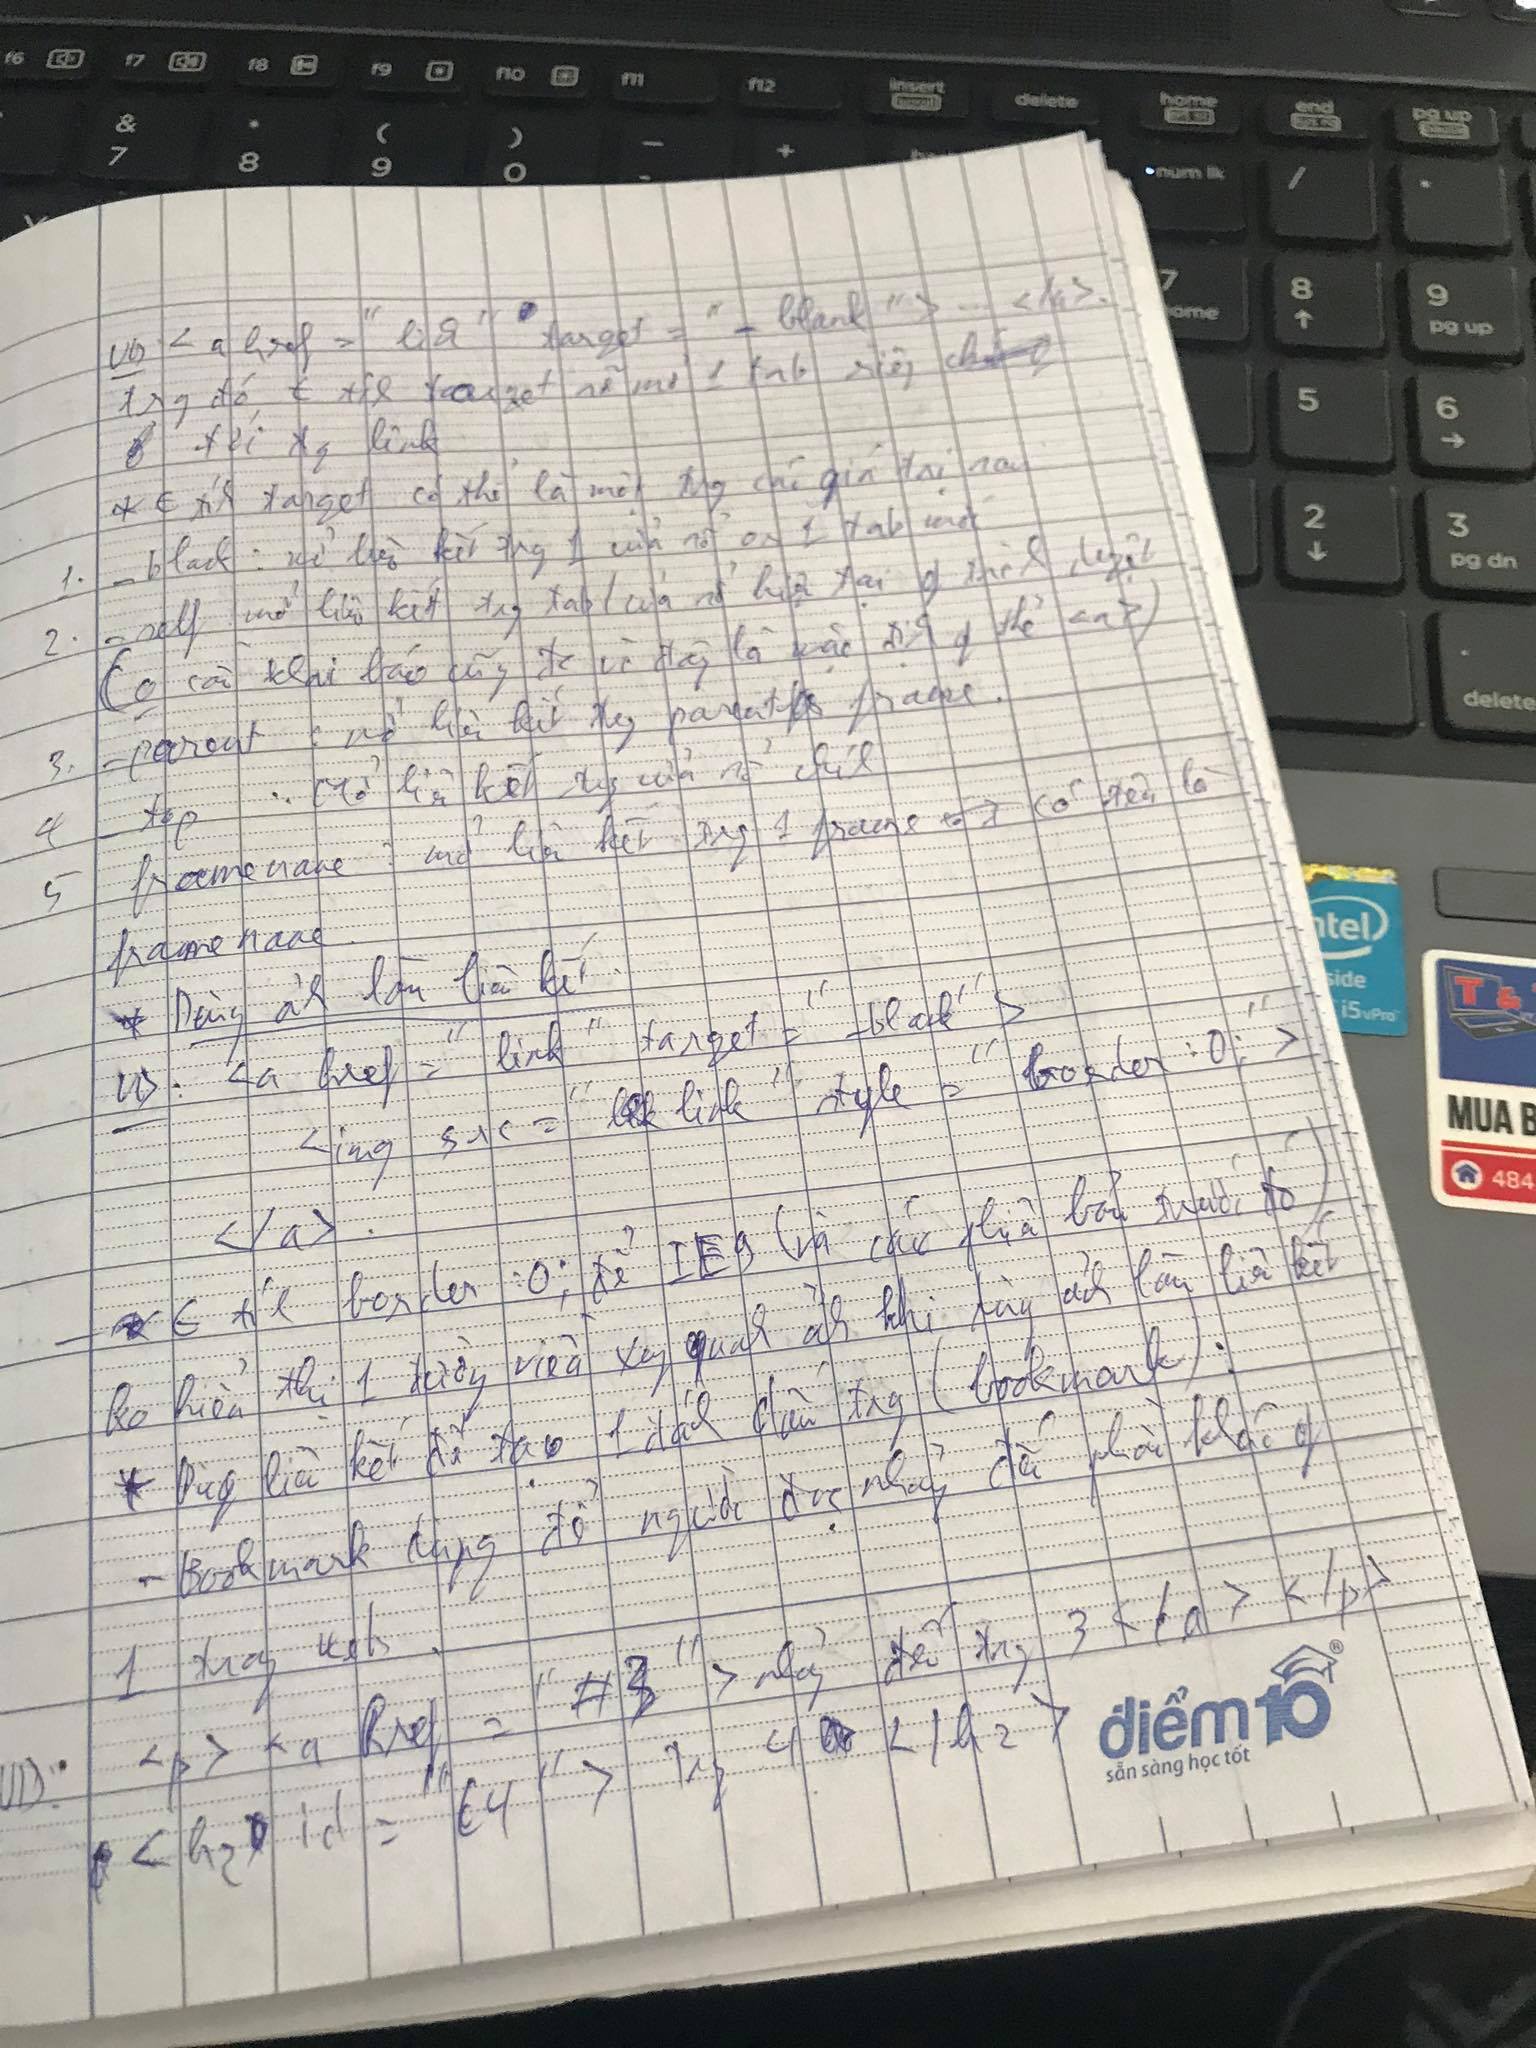 f6 f7 f8 f9 f10 f11 f12 insert delete home end pg up
& 7 * 8 ( 9 ) 0 - + num lk / *
7 home 8 9 pg up
5 6
2 3 pg dn
. delete
VD <a href = " " target = "_blank"> ... </a>.
trg đó target mở 1 tab riêng
trg link
* target có thể là một trg các giá trị sau
1. _blank : mở liên kết trg 1 cửa sổ or 1 tab mới
2. _self mở liên kết trg tab/cửa sổ hiện tại trình duyệt
( cần khai báo cũng đc vì đây là mặc định thẻ <a>)
3. _parent : mở liên kết trg parent frame.
4 _top : mở liên kết trg cửa sổ chính
5 framename : mở liên kết trg 1 frame có tên là
framename
* Dùng ảnh làm liên kết.
VD: <a href = "link" target = "_blank">
<img src = "link" style = "border :0;">
</a>.
* border :0; để IE9 (và các phiên bản trước đó)
ko hiển thị 1 đường viền xung quanh ảnh khi dùng ảnh làm liên kết
* Dùng liên kết để tạo 1 đánh dấu trg (bookmark).
- Bookmark dùng để người đọc nhảy đến phần khác
1 trang web.
VD: <p> <a href = "#3"> nhảy đến trg 3 </a> </p>
<h2 id = "C4"> 4 </h2>
điểm10®
sẵn sàng học tốt
intel
side
i5 vPro
T &
MUA B
484